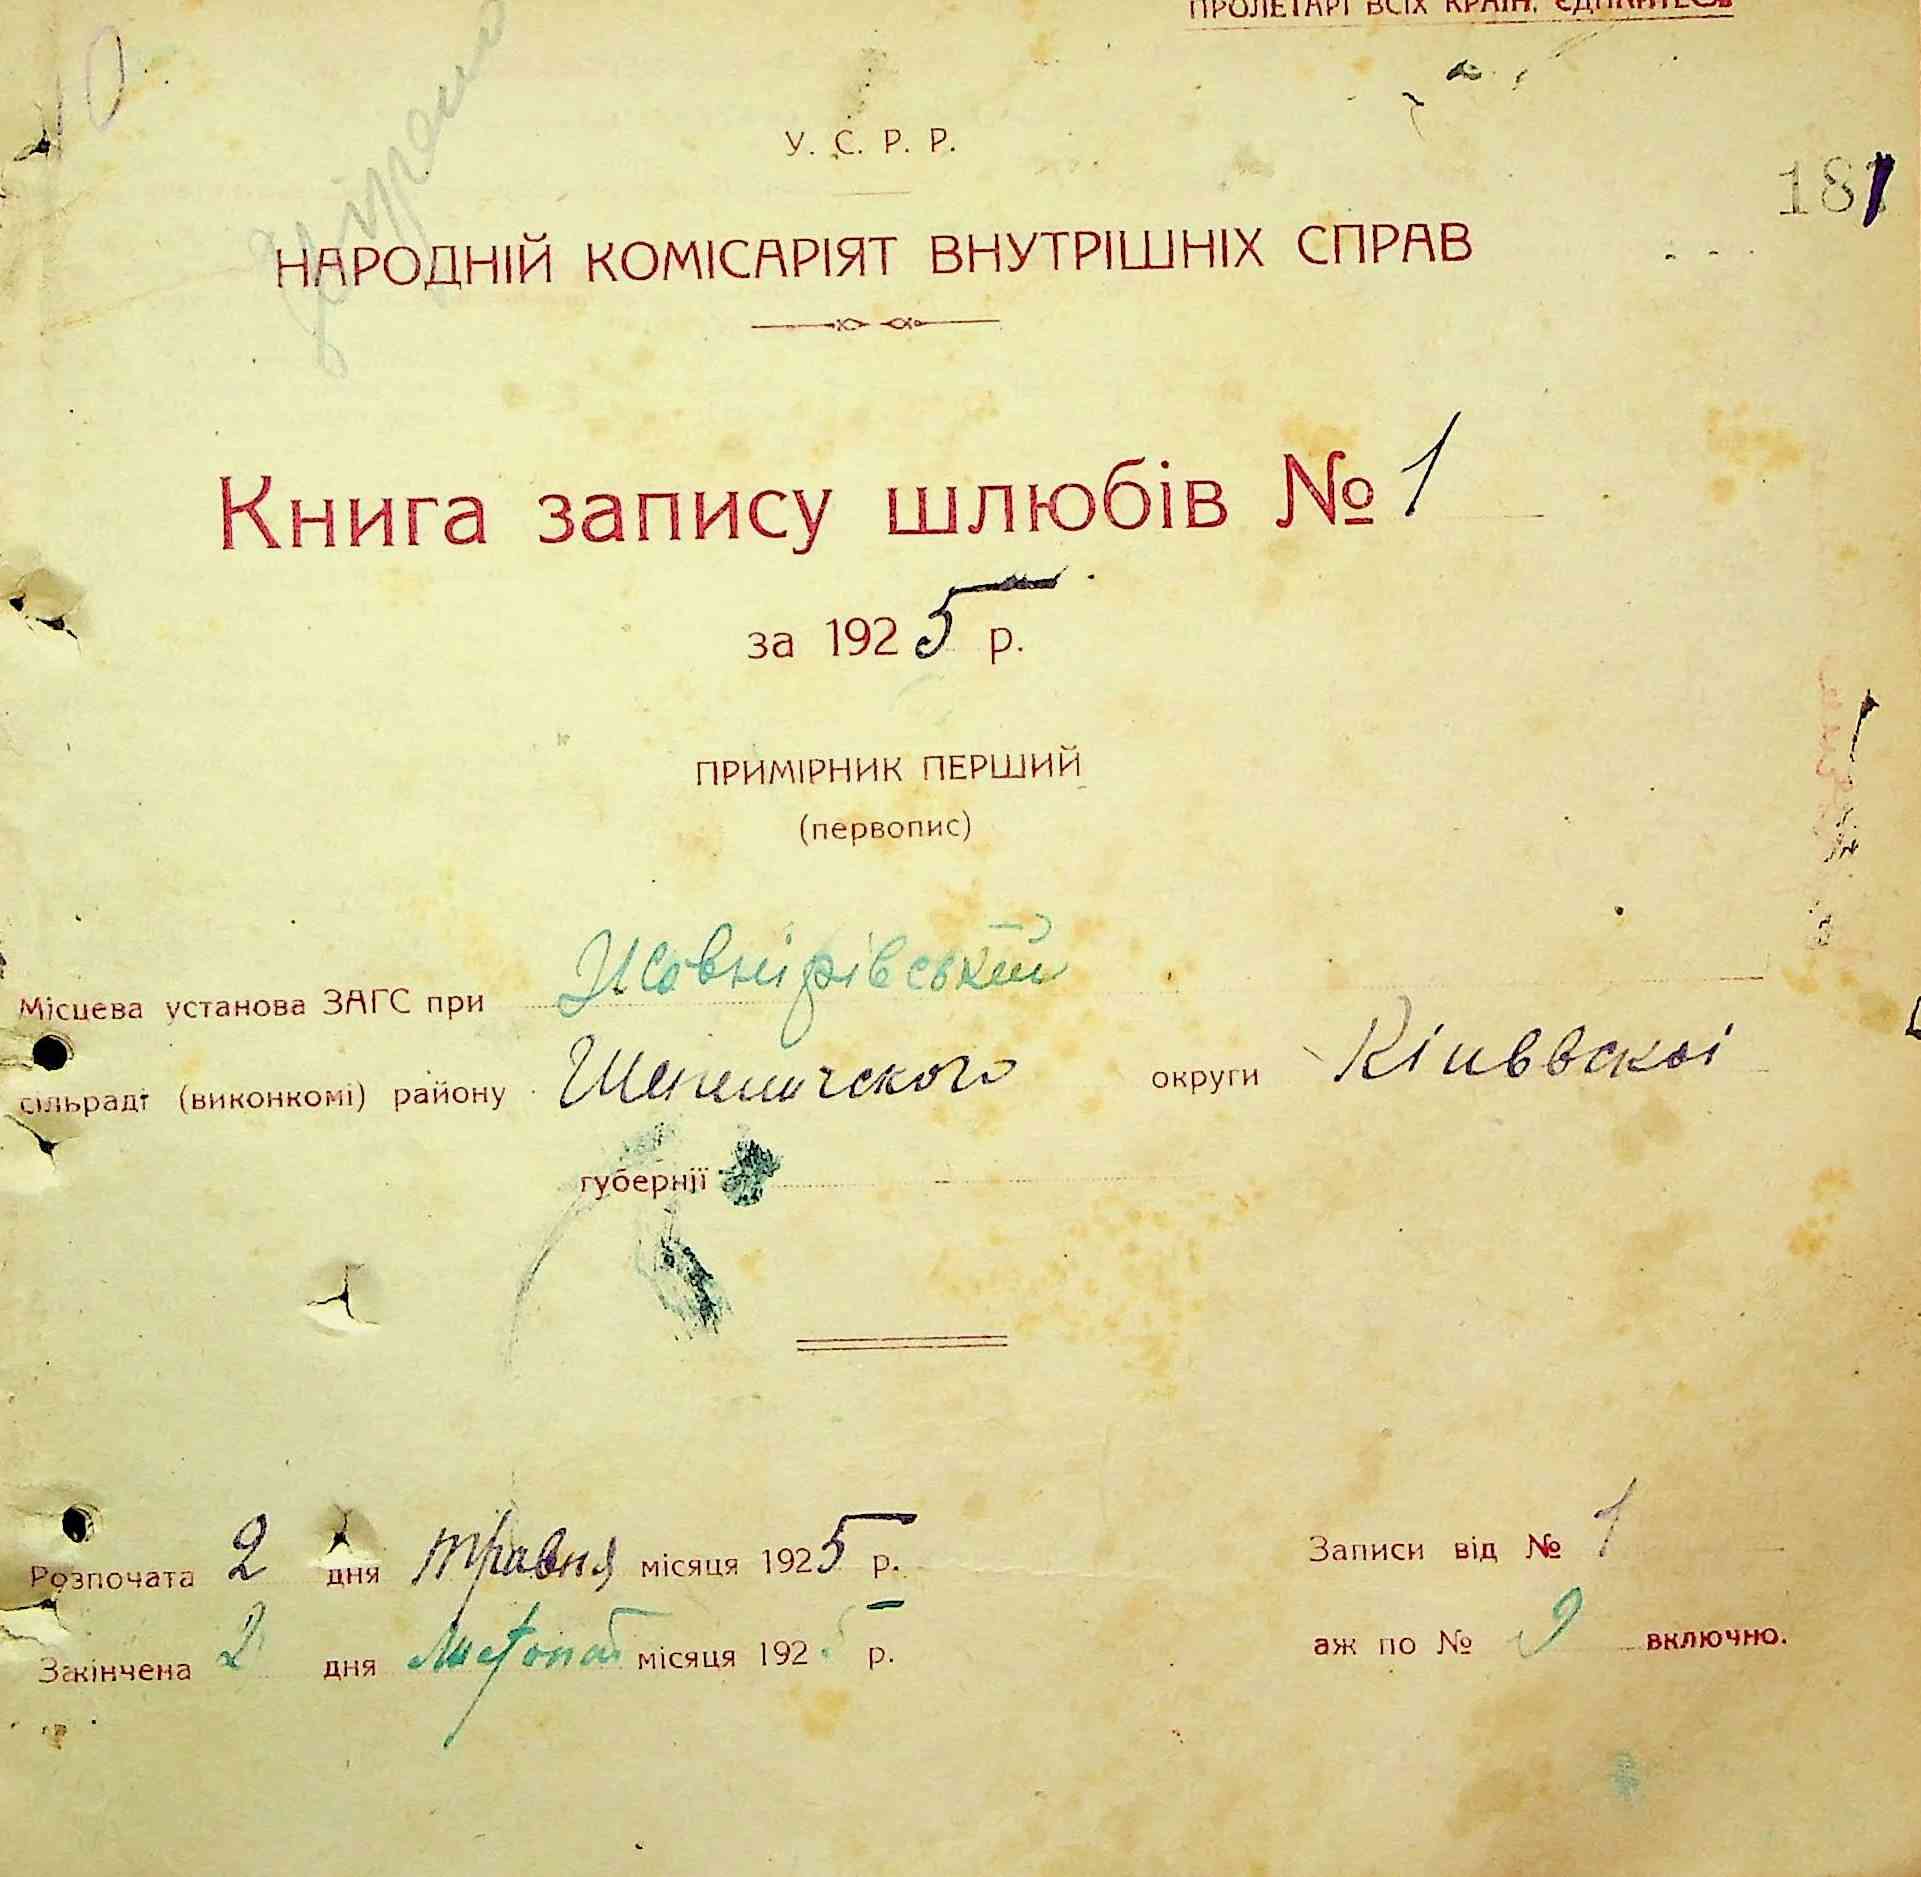 ПРОЛЕТАРІ ВСІХ КРАЇН, ЄДНАЙТЕСЬ
У. С. Р. Р.
181
НАРОДНІЙ КОМІСАРІЯТ ВНУТРІШНІХ СПРАВ
Книга запису шлюбів № 1
за 1925 р.
ПРИМІРНИК ПЕРШИЙ
(первопис)
Місцева установа ЗАГС при Жовнірівській
сільраді (виконкомі) району Шепеличского округи Кіиввскоі
губернії
Розпочата 2 дня травня місяця 1925 р. Записи від № 1
Закінчена 2 дня Листопад місяця 1925 р. аж по № 9 включно.